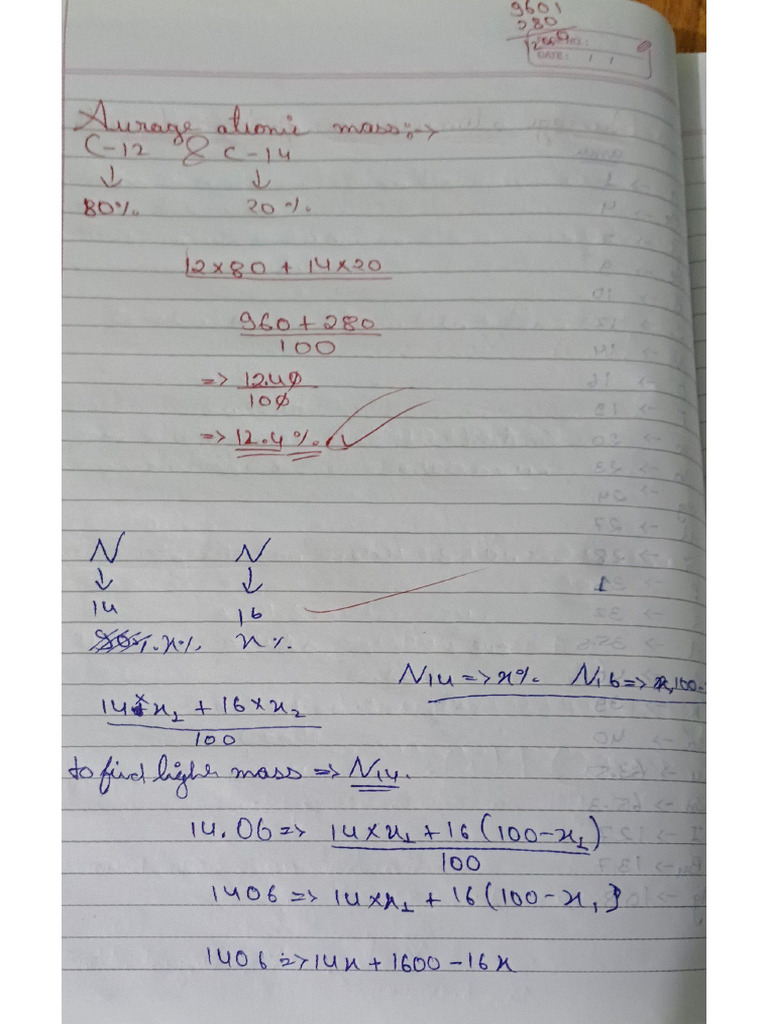 9601
280
DATE: / /
Aurage atomic mass:->
C-12 & C-14
↓ ↓
80%. 20%.
12×80 + 14×20
960 + 280
100
=> 12.40
100
=> 12.4%.
N N
↓ ↓
14 16
x%. x%.
N14 => x% N16 => x,100-
14×x1 + 16×x2
100
to find lighe mass => N14.
14.06 => 14×x1 + 16(100-x1)
100
1406 => 14×x1 + 16(100-x1)
1406 => 14x + 1600 - 16x